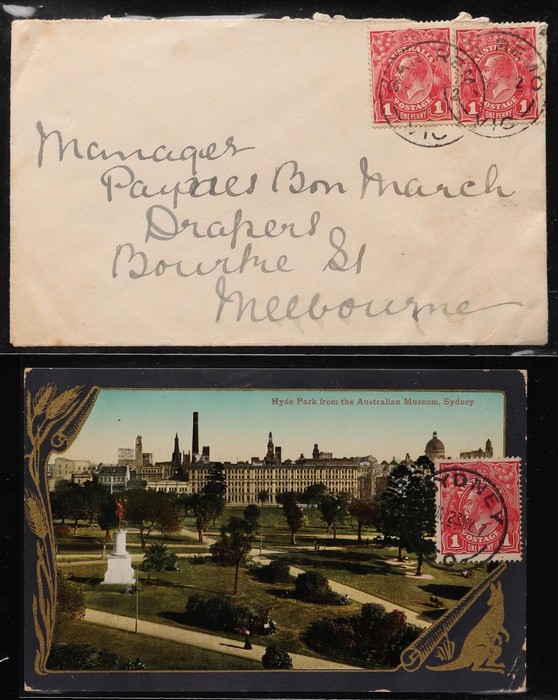 AUSTRALIA AUSTRALIA
POSTAGE POSTAGE
1 1 1 1
ONE PENNY ONE PENNY
VIC VIC
Manager
Paynes Bon March
Drapers
Bourke St
Melbourne
Hyde Park from the Australian Museum, Sydney
SYDNEY
POSTAGE
1 1
ONE PENNY